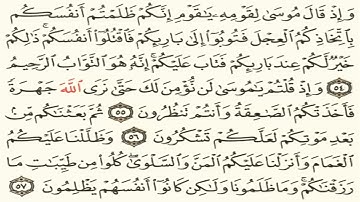 وَإِذْ قَالَ مُوسَىٰ لِقَوْمِهِۦ يَٰقَوْمِ إِنَّكُمْ ظَلَمْتُمْ أَنفُسَكُم
بِٱتِّخَاذِكُمُ ٱلْعِجْلَ فَتُوبُوٓا۟ إِلَىٰ بَارِئِكُمْ فَٱقْتُلُوٓا۟ أَنفُسَكُمْ ذَٰلِكُمْ
خَيْرٌ لَّكُمْ عِندَ بَارِئِكُمْ فَتَابَ عَلَيْكُمْ إِنَّهُۥ هُوَ ٱلتَّوَّابُ ٱلرَّحِيمُ
٥٤ وَإِذْ قُلْتُمْ يَٰمُوسَىٰ لَن نُّؤْمِنَ لَكَ حَتَّىٰ نَرَى ٱللَّهَ جَهْرَةً
فَأَخَذَتْكُمُ ٱلصَّٰعِقَةُ وَأَنتُمْ تَنظُرُونَ ٥٥ ثُمَّ بَعَثْنَٰكُم مِّنۢ
بَعْدِ مَوْتِكُمْ لَعَلَّكُمْ تَشْكُرُونَ ٥٦ وَظَلَّلْنَا عَلَيْكُمُ
ٱلْغَمَامَ وَأَنزَلْنَا عَلَيْكُمُ ٱلْمَنَّ وَٱلسَّلْوَىٰ كُلُوا۟ مِن طَيِّبَٰتِ مَا
رَزَقْنَٰكُمْ وَمَا ظَلَمُونَا وَلَٰكِن كَانُوٓا۟ أَنفُسَهُمْ يَظْلِمُونَ ٥٧